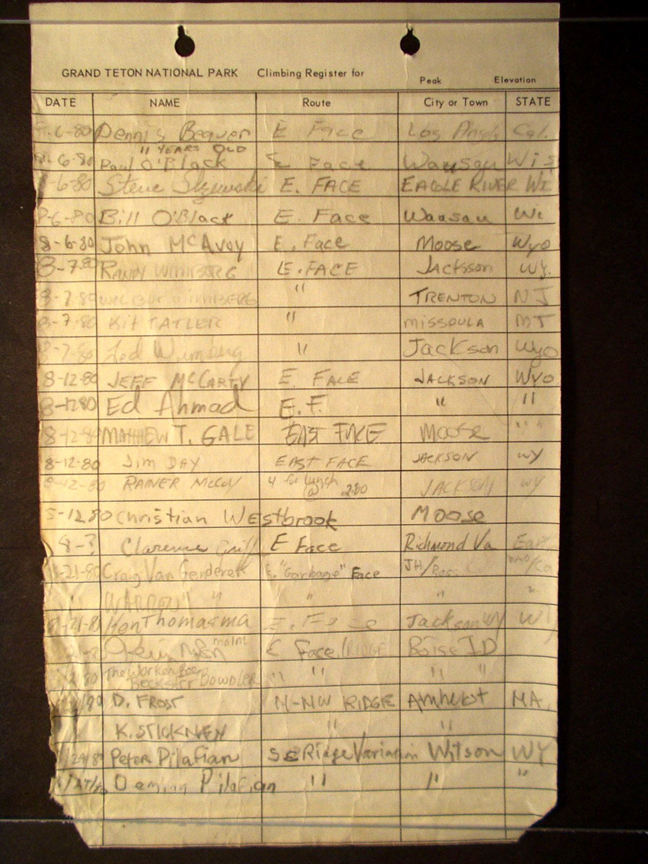 GRAND TETON NATIONAL PARK Climbing Register for Peak Elevation
DATE NAME Route City or Town STATE
6-80 Dennis Beaver E Face Los Cal.
11 YEARS OLD
6-80 Paul O'Black E Face Wausau Wis
6-80 Steve E. FACE EAGLE RIVER WI
8-6-80 Bill O'Black E. Face Wausau Wi
8-6-80 John McAvoy E. Face Moose Wyo
8-7-80 RANDY E.FACE Jackson WY.
8-7-80 " TRENTON NJ
8-7-80 Kit TATLER " MISSOULA MT
8-7-80 " Jackson Wyo
8-12-80 JEFF McCARTY E. FACE JACKSON Wyo
8-12-80 Ed Ahmad E.F. " "
8-12-80 MATTHEW T. GALE EAST FACE Moose " "
8-12-80 Jim DAY EAST FACE JACKSON WY
8-12-80 RAINER McCOY 4 for lunch JACKSON WY
8-12-80 Christian Westbrook Moose
8-? Clarence E Face Richmond Va
21-80 Craig Van E. "Garbage" Face JH/
" " " " "
Ken Thomasma E. Face Jackson WY
E Face/RIDGE Boise ID
80 The " " " "
80 D. FROST N-NW RIDGE Amherst MA.
" K. STICKNEY " "
Peter Pilafian SE Ridge Variation Wilson WY
Damian Pilafian " " "